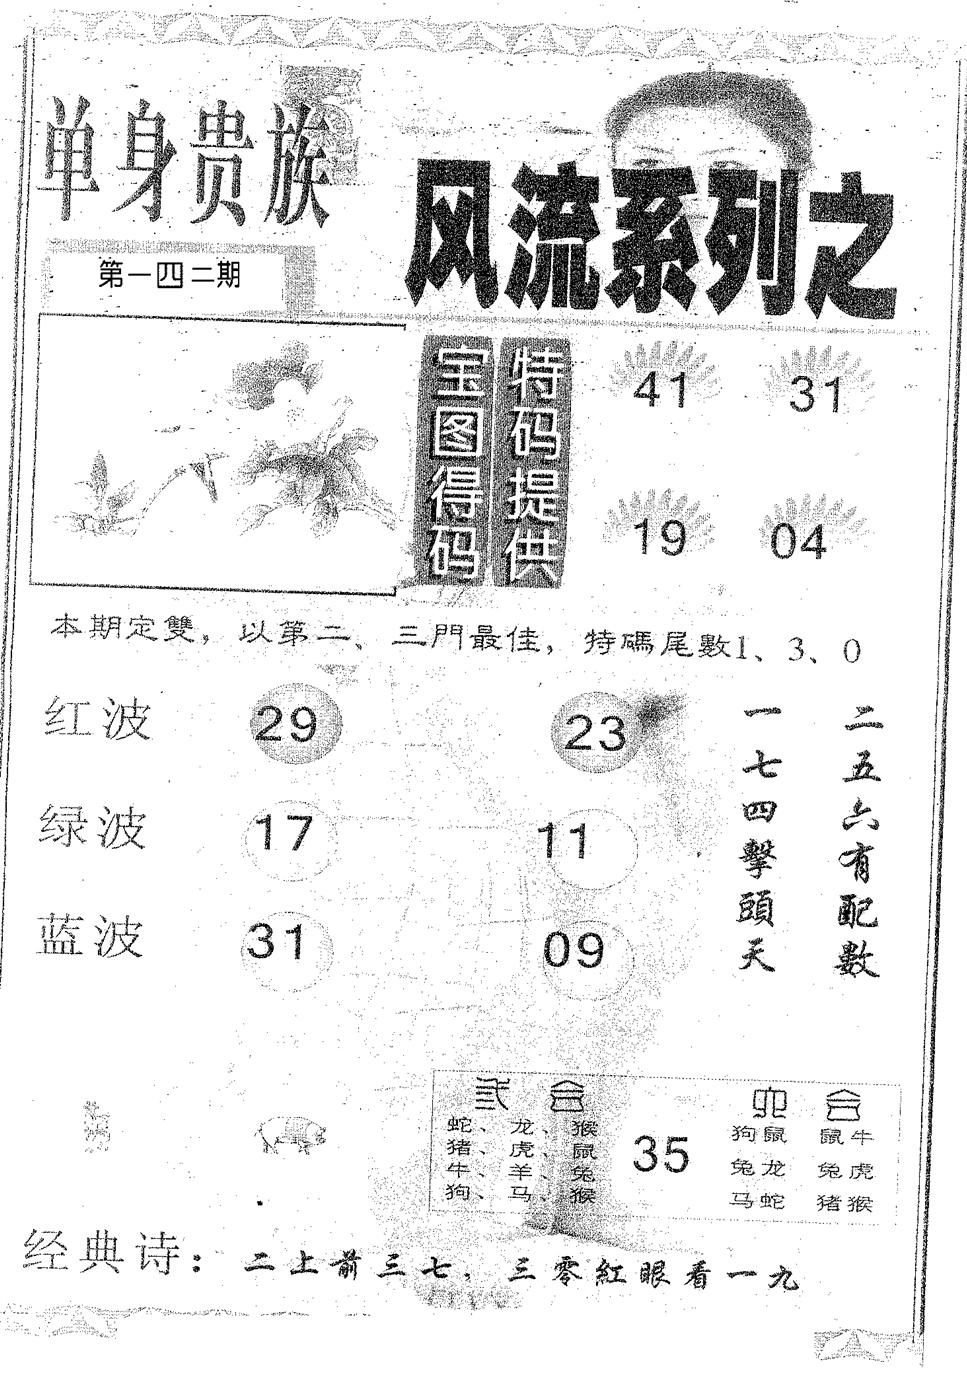 单身贵族
风流系列之
第一四二期
宝图得码
特码提供
41 31
19 04
本期定雙，以第二、三門最佳，特碼尾數1、3、0
红波 29 23
绿波 17 11
蓝波 31 09
二五六有配數
一七四擊頭天
弍合
蛇、龙、猴
猪、虎、鼠
牛、羊、兔
狗、马、猴
35
六合
狗鼠 鼠牛
兔龙 兔虎
马蛇 猪猴
经典诗：二上前三七，三零紅眼看一九